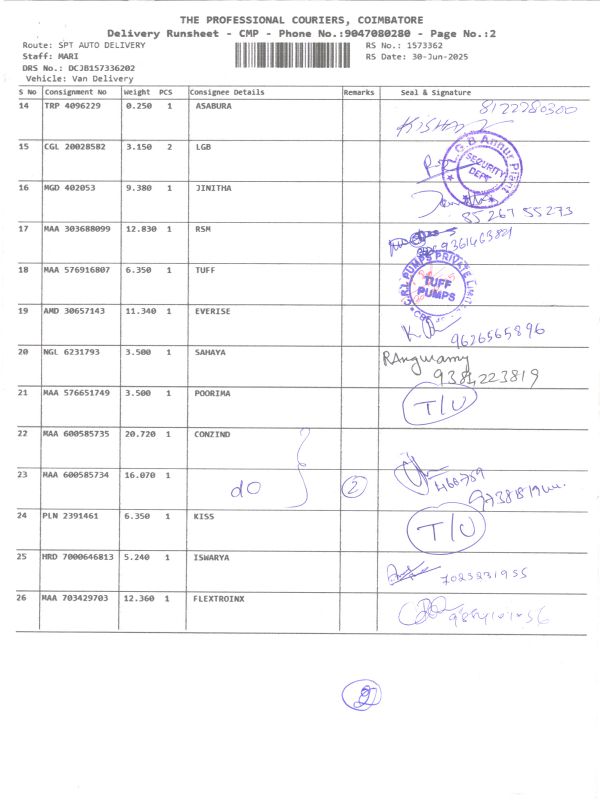 THE PROFESSIONAL COURIERS, COIMBATORE
Delivery Runsheet - CMP - Phone No.:9047080280 - Page No.:2
Route: SPT AUTO DELIVERY
RS No.: 1573362
Staff: MARI
RS Date: 30-Jun-2025
DRS No.: DCJB157336202
Vehicle: Van Delivery
S No Consignment No Weight PCS Consignee Details Remarks Seal & Signature
14 TRP 4096229 0.250 1 ASABURA 8122280300
15 CGL 20028582 3.150 2 LGB
L.G.B Annur Plant
SECURITY
DEPT
16 MGD 402053 9.380 1 JINITHA
85267 55273
17 MAA 303688099 12.830 1 RSM 9361463821
18 MAA 576916807 6.350 1 TUFF
PUMPS PRIVATE LIMITED
TUFF
PUMPS
19 AMD 30657143 11.340 1 EVERISE
9626565896
20 NGL 6231793 3.500 1 SAHAYA RAngwamy
9384223819
21 MAA 576651749 3.500 1 POORIMA T/U
22 MAA 600585735 20.720 1 CONZIND
23 MAA 600585734 16.070 1
do 2
24 PLN 2391461 6.350 1 KISS T/U
25 HRD 7000646813 5.240 1 ISWARYA
26 MAA 703429703 12.360 1 FLEXTROINX
2